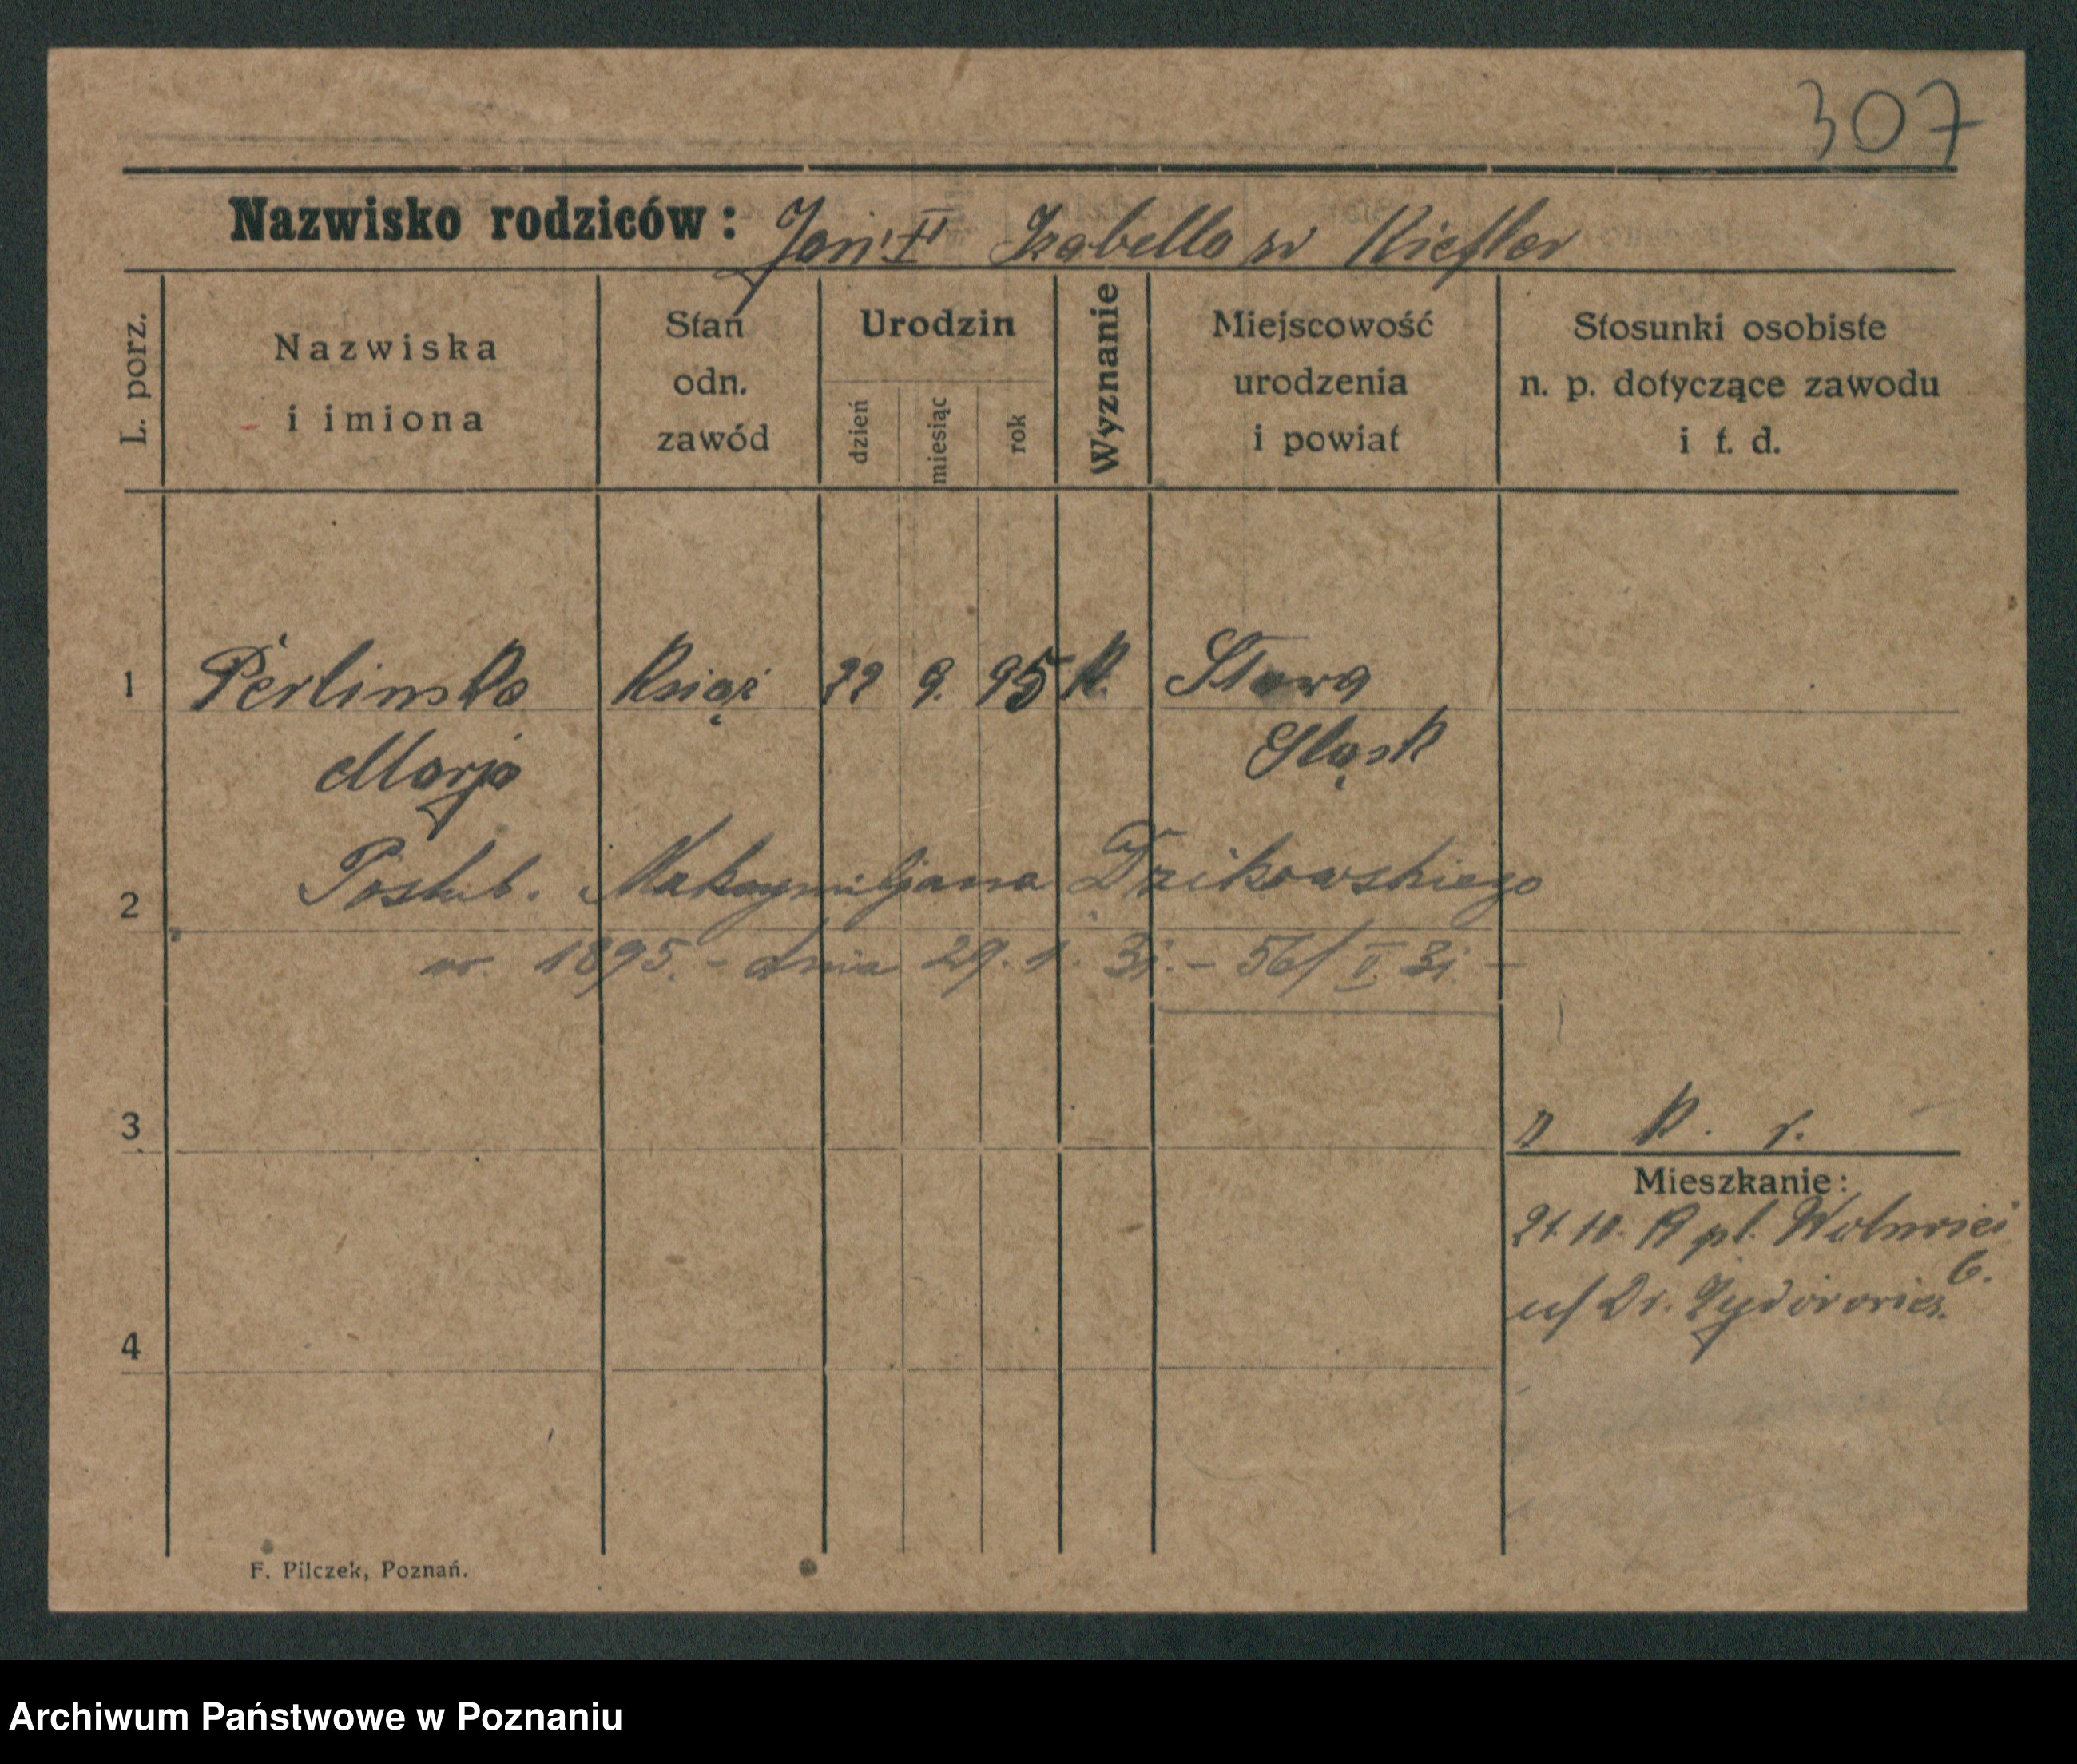 307
Nazwisko rodziców: Jan Izabella
L. porz.
Nazwiska
i imiona
Stan
odn.
zawód
Urodzin
dzień
miesiąc
rok
Wyznanie
Miejscowość
urodzenia
i powiat
Stosunki osobiste
n. p. dotyczące zawodu
i t. d.
1 Perlinska Książ 22 9. 95 K.
Marja Śląsk
2 Poslub. Maksymiljana Dzikowskiego
ur. 1895. - dnia 29. 1. 31. - 56/ V. 31. -
3 K. r.
Mieszkanie:
21.10. pl. Wolności
6.
u/ Dr.
4
F. Pilczek, Poznań.
Archiwum Państwowe w Poznaniu